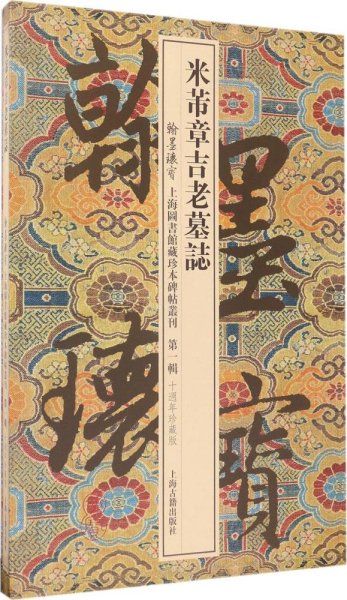 米芾章吉老墓誌
翰墨瓌寶 上海圖書館藏珍本碑帖叢刊 第一輯 十週年珍藏版
上海古籍出版社
翰墨
瓌寶